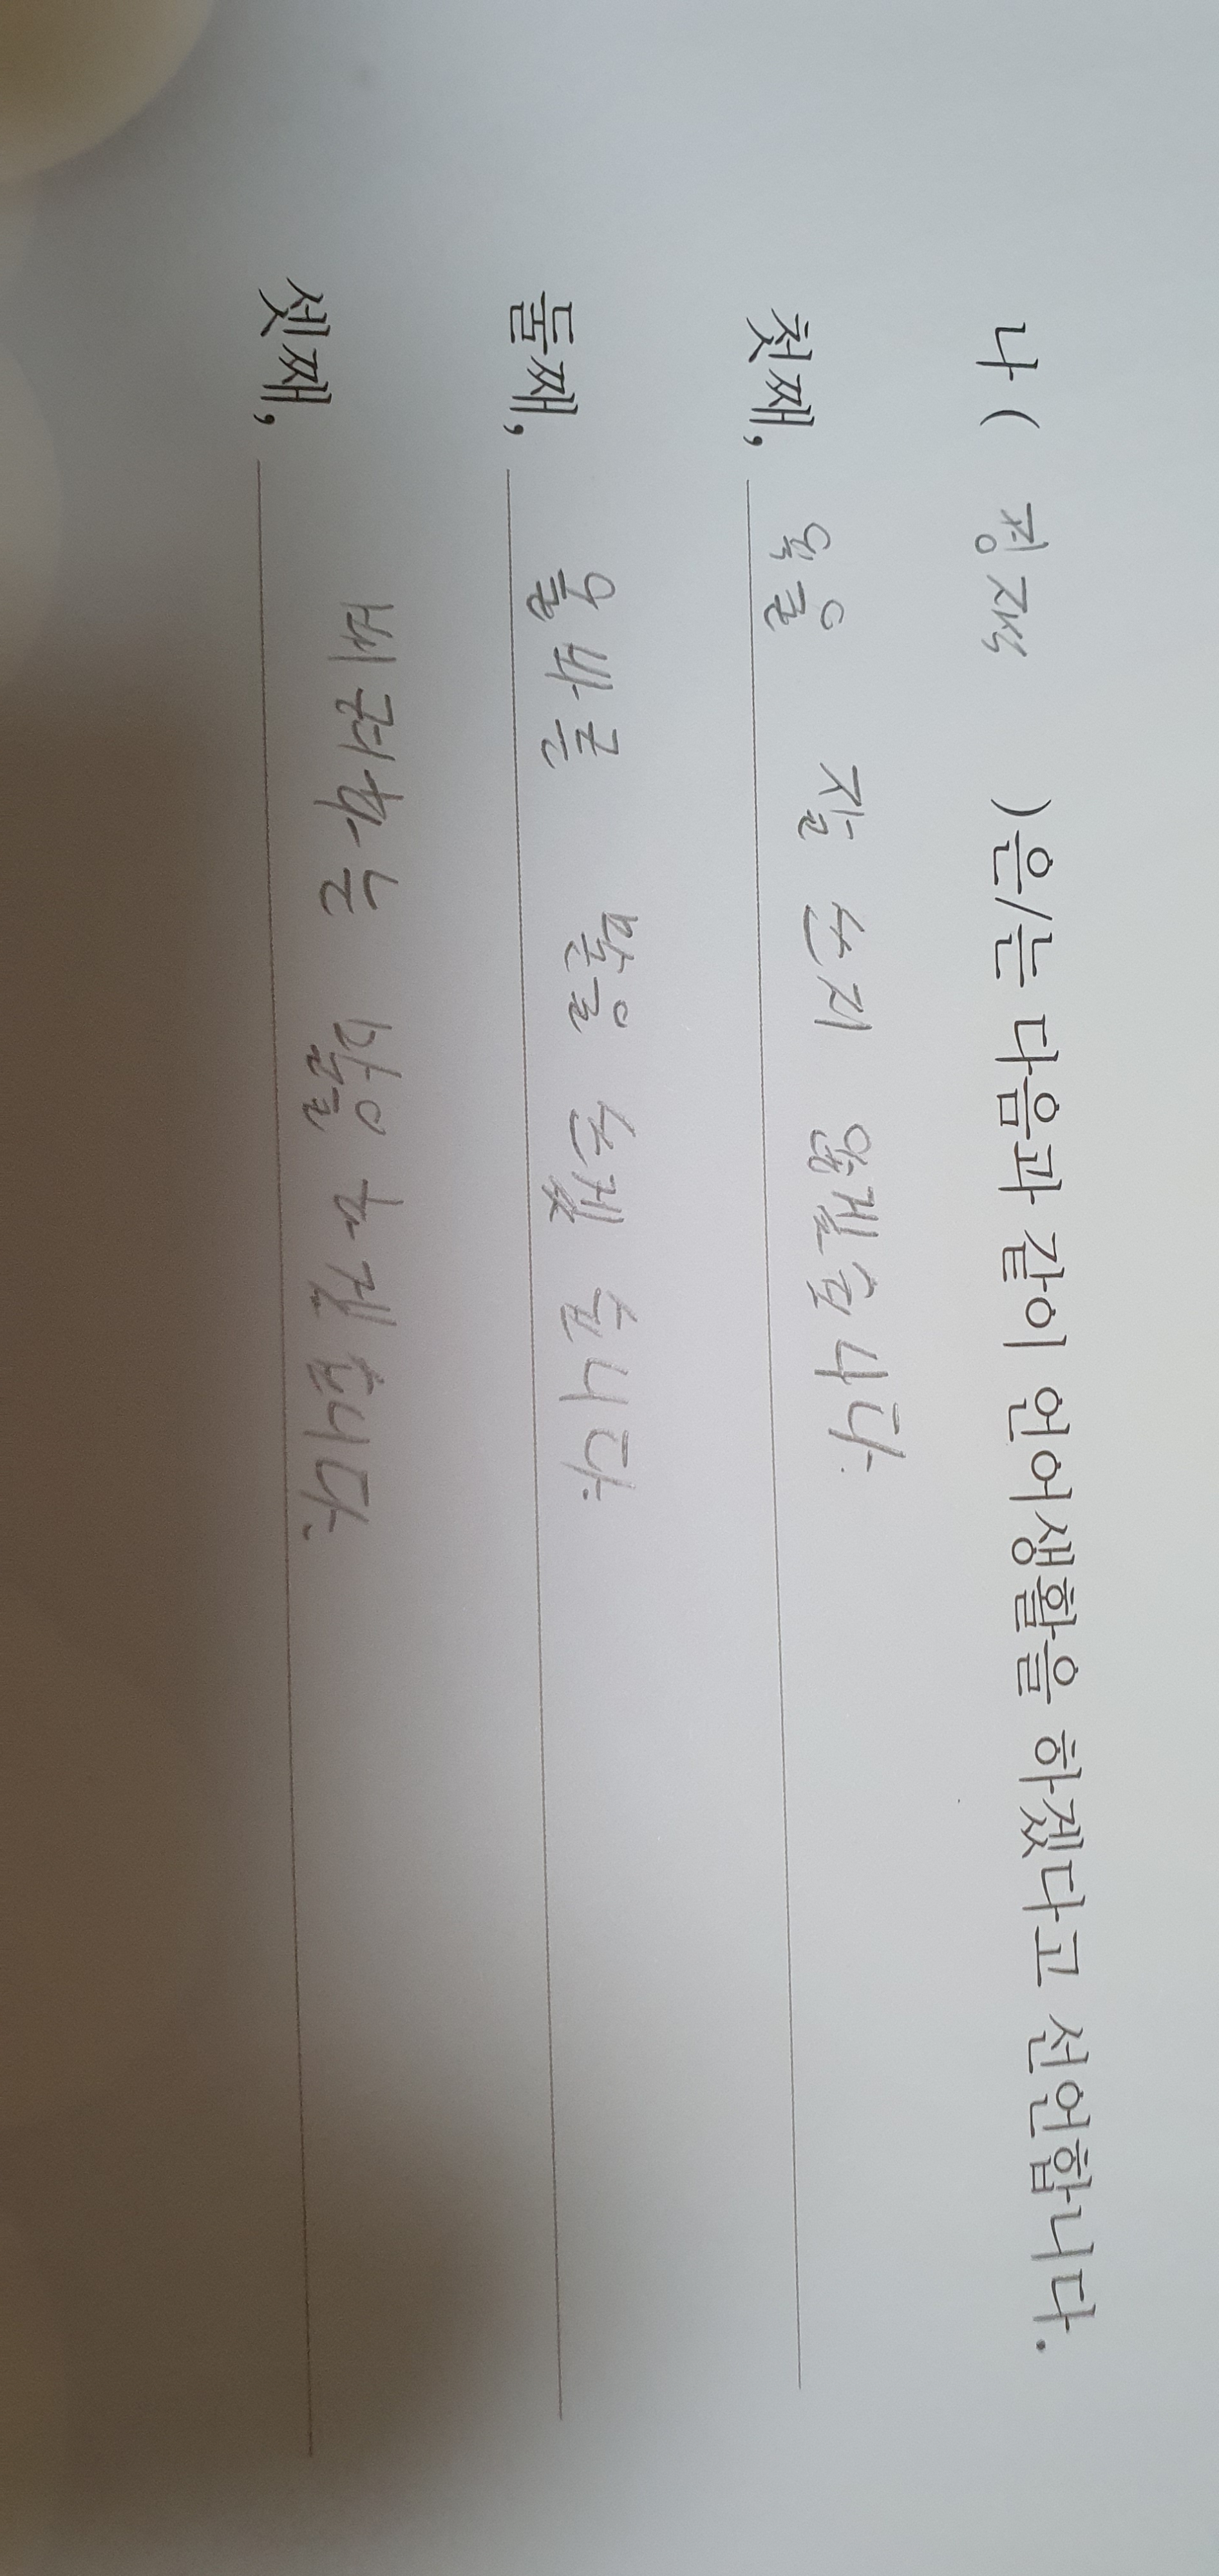 나 ( 정재 )은/는 다음과 같이 언어생활을 하겠다고 선언합니다.
첫째, 욕을 잘 쓰지 않겠습니다.
둘째, 올바른 말을 쓰겠습니다.
셋째, 배려하는 말을 하겠습니다.